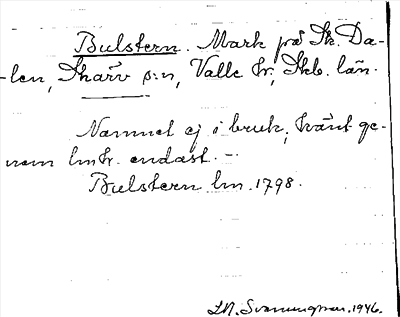 Bulstern. Mark på St. Da-
len, Skärv s:n, Valle hd, Skb. län.
Namnet ej i bruk, känt ge-
nom lmkr. endast. –
Bulstern lm. 1798.
1946.